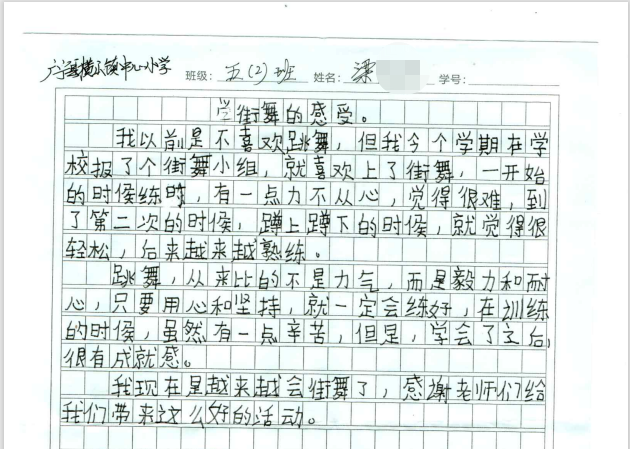 广宁县横山镇中心小学 班级：五(2)班 姓名：梁 学号：
学街舞的感受。
我以前是不喜欢跳舞，但我今个学期在学
校报了个街舞小组，就喜欢上了街舞，一开始
的时候练时，有一点力不从心，觉得很难，到
了第二次的时候，蹲上蹲下的时候，就觉得很
轻松，后来越来越熟练。
跳舞，从来比的不是力气，而是毅力和耐
心，只要用心和坚持，就一定会练好，在训练
的时候，虽然有一点辛苦，但是，学会了之后，
很有成就感。
我现在是越来越会街舞了，感谢老师们给
我们带来这么好的活动。